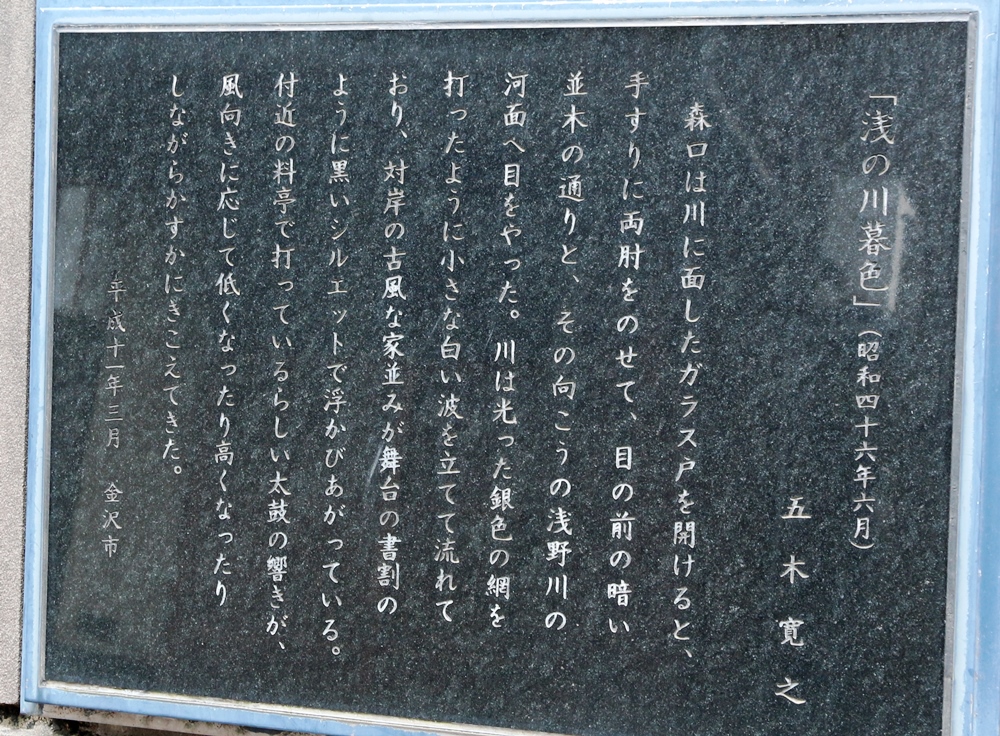 「浅の川暮色」（昭和四十六年六月）
五木寛之
森口は川に面したガラス戸を開けると、
手すりに両肘をのせて、目の前の暗い
並木の通りと、その向こうの浅野川の
河面へ目をやった。川は光った銀色の網を
打ったように小さな白い波を立てて流れて
おり、対岸の古風な家並みが舞台の書割の
ように黒いシルエットで浮かびあがっている。
付近の料亭で打っているらしい太鼓の響きが、
風向きに応じて低くなったり高くなったり
しながらかすかにきこえてきた。
平成十一年三月　金沢市